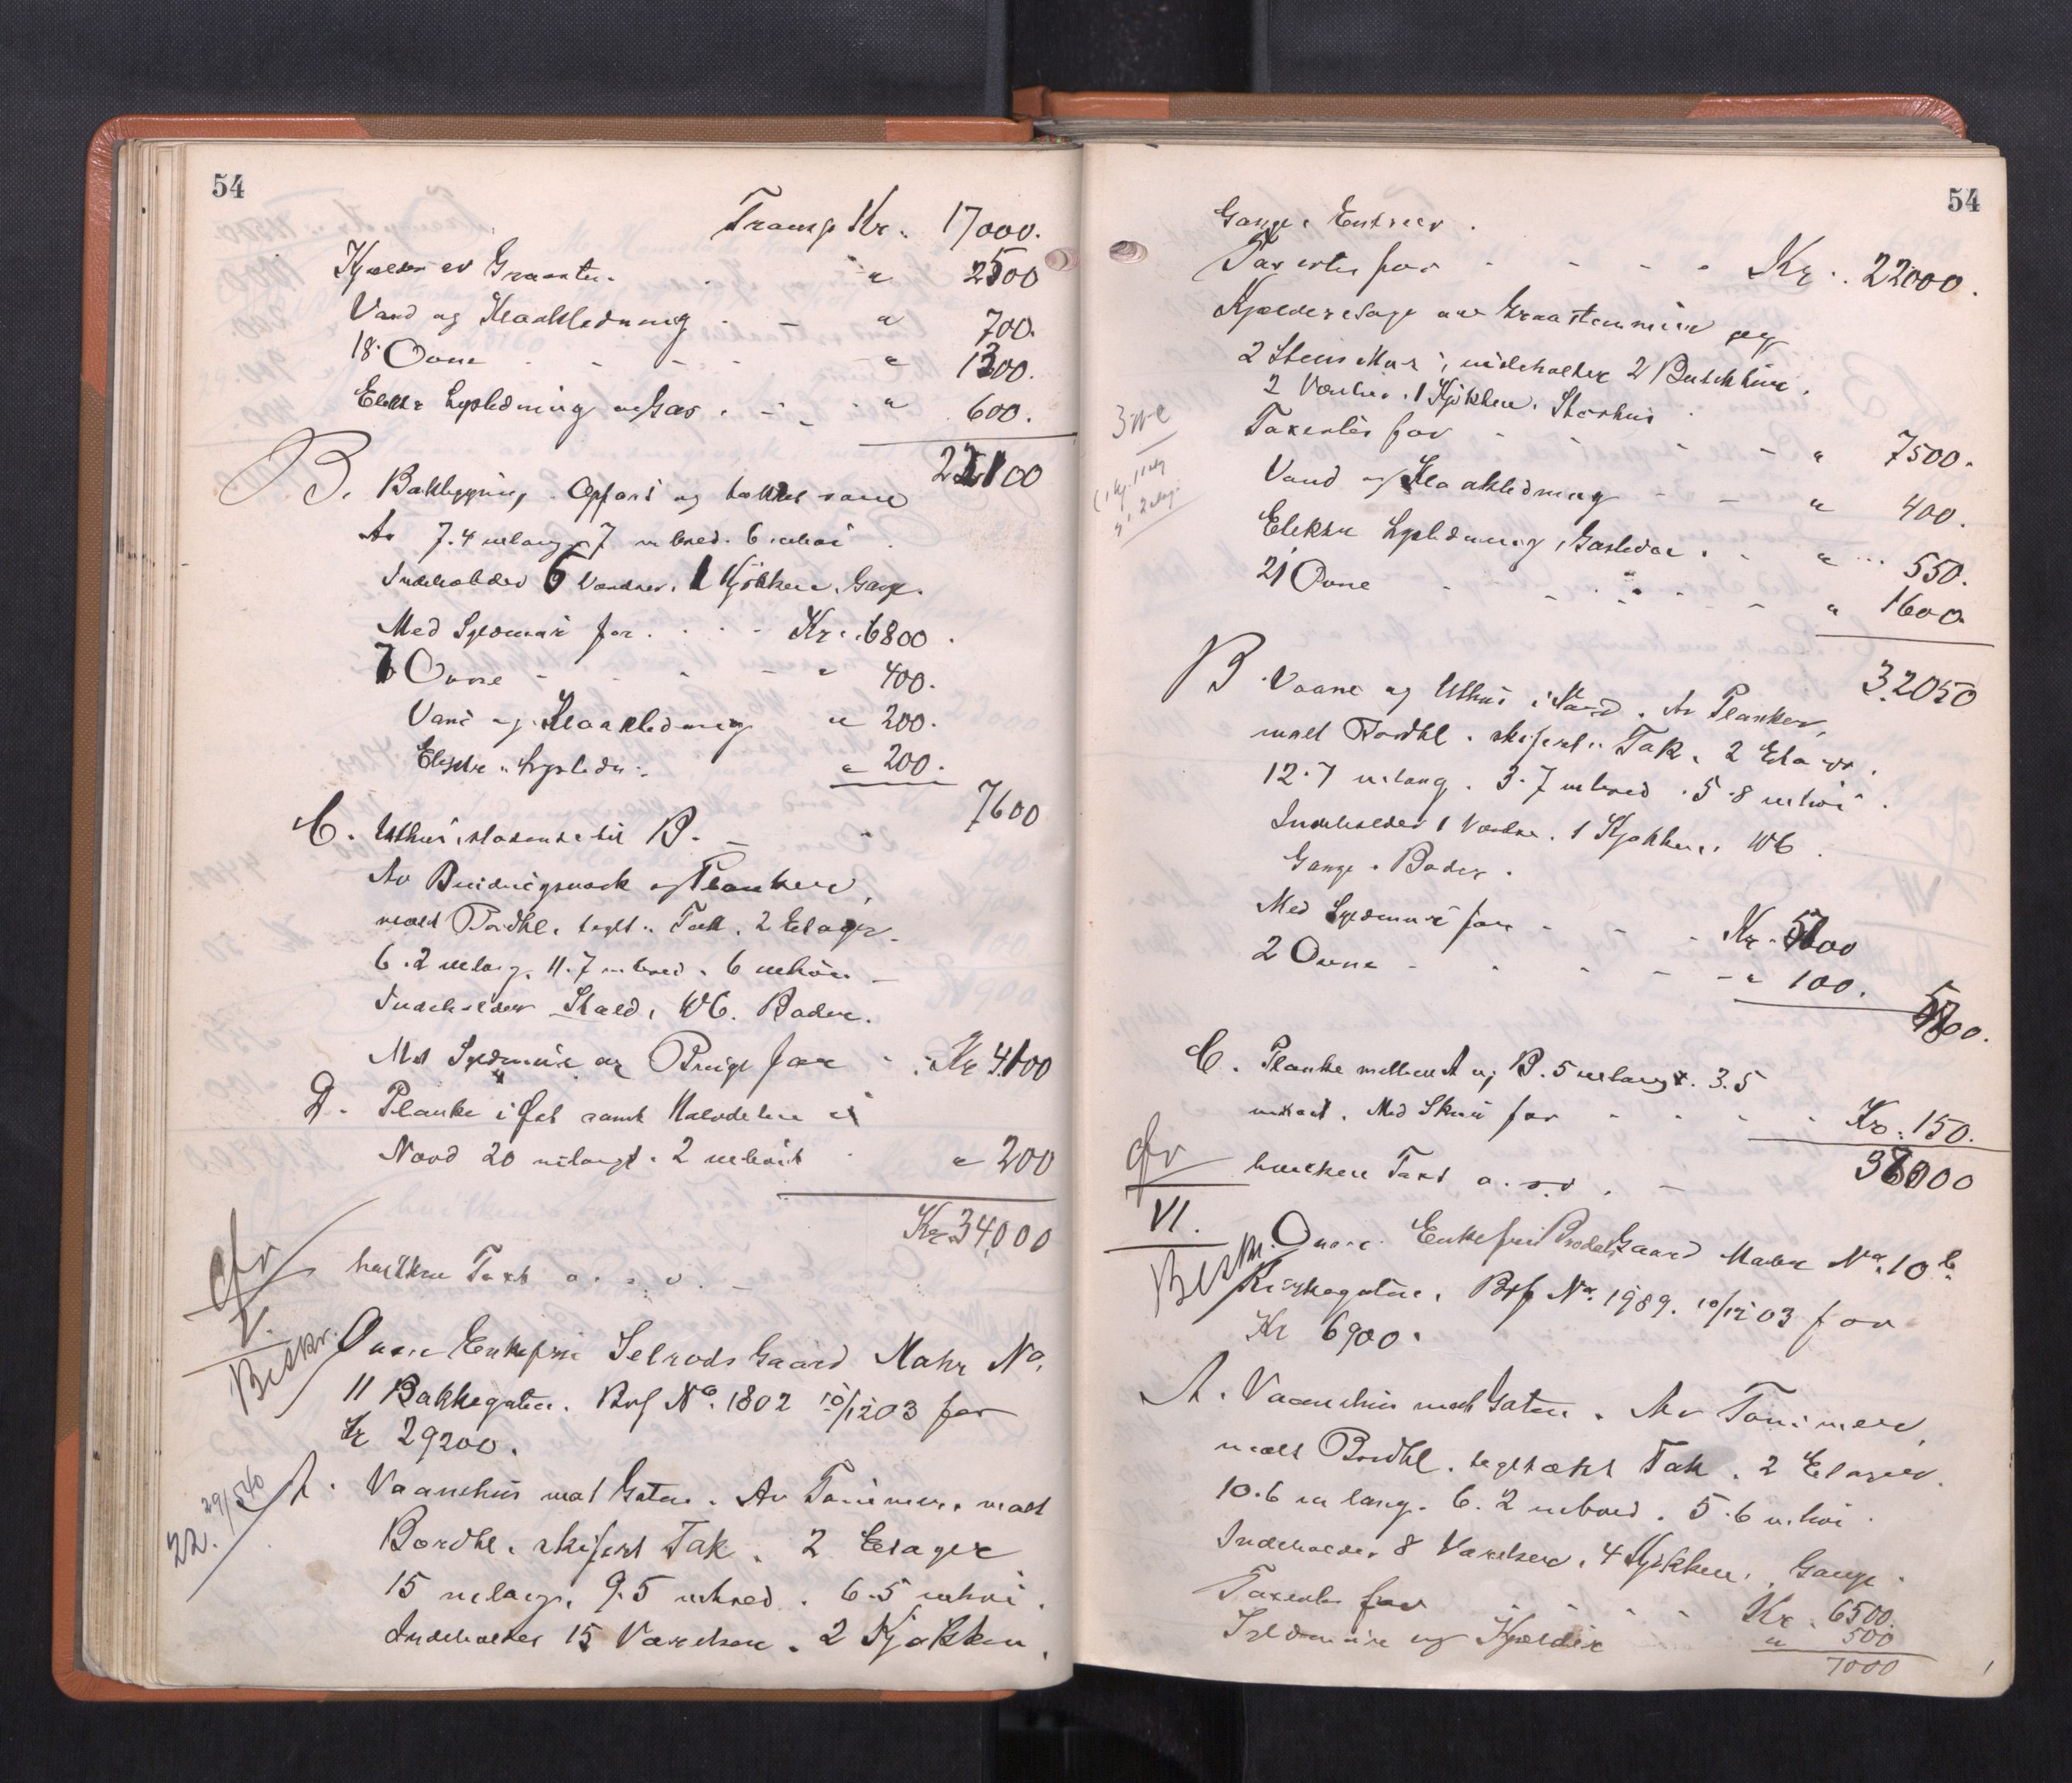 54
Transp Kr. 17000.
Kjælder av Graasten. " 2500
Vand og Kloakledning - " 700.
18 Ovne - - - " 1300.
Elektr Lysledning og Gas. - " 600.
22100
B. Bakbygning. Opført og takket som
A. 7.4 m lang 7 m bred. 6 m høi
Indeholder 6 Værelser. 1 Kjøkken. Gang.
Med Syldmur for. Kr. 6800.
7 Ovne - - - " 400.
Vand og Kloakledning " 200.
Elektr. Lysledn. " 200.
7600
C. Uthus støtende til B. -
Av Bindingsverk og Planker,
malt Bordkl. teglt. Tak. 2 Etager.
6.2 m lang. 11.7 m bred. 6 m høi -
Indeholder Stald, WC. Boder.
Med Syldmur og for Kr 4100
D. Planke i Øst samt Halvdelen i
Nord 20 m langt. 2 m høit " 200
Kr 34,000
cfr
hvilken Taxt o. s. v. -
V.
Beskr.
Ovne Enkefru Selrods Gaard Matr No.
11 Bakkegaten. Brf No. 1802 10/12 03 for
Kr 29200.
22. 29/5 40
A. Vaanehus mot Gaten. Av Tømmer, malt
Bordkl. skifert Tak. 2 Etager
15 m lang, 9.5 m bred. 6.5 m høi.
Indeholder 15 Værelser. 2 Kjøkken.
54
Gange. Entreer.
Taxertes for - - - Kr. 22000.
Kjælderetage av Graastenmur og
2 Stens Mur, indeholder 2 Butikker,
2 Værelser. 1 Kjøkken.
Taxertes for - - - " 7500.
Vand og Kloakledning - - " 400.
Elektr Lysledning, Gasledn. - " 550.
21 Ovne - - - " 1600.
32050
B. Vaane og Uthus i Nord. Av Planker,
malt Bordkl. skifert. Tak. 2 Etager.
12.7 m lang. 3.7 m bred. 5.8 m høi.
Indeholder 1 Værelse. 1 Kjøkken. WC.
Gange. Boder.
Med Syldmur for - - - Kr.
2 Ovne - - - " 100.
C. Planke mellem A og B. 5 m langt. 3.5
m høit. Med Skur for - - - Kr. 150.
cfr
hvilken Taxt o. s. v. -
VI.
Beskr.
Ovne. Enkefru Gaard Matr No. 10 b
Kirkegaten. Brf No. 1989. 10/12 03 for
Kr 6900.
A. Vaanehus mot Gaten. Av Tømmer,
malt Bordkl. tegltækt Tak. 2 Etager.
10.6 m lang. 6.2 m bred. 5.6 m høi
Indeholder 8 Værelser. 4 Kjøkken. Gange.
Taxertes for - - - Kr. 6500.
Syldmur og Kjælder " 500
7000